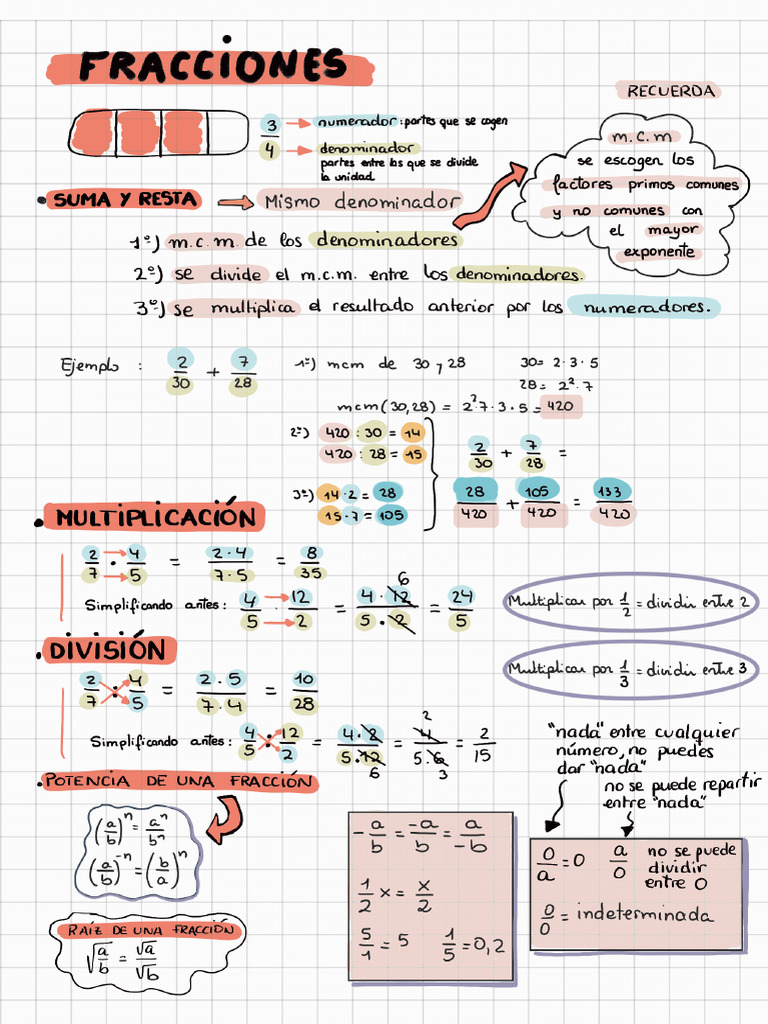 FRACCIONES
RECUERDA
3/4 → numerador: partes que se cogen
→ denominador
partes entre las que se divide
la unidad.
m.c.m
se escogen los
factores primos comunes
y no comunes con
el mayor
exponente
• SUMA Y RESTA → Mismo denominador
1º) m.c.m de los denominadores
2º) se divide el m.c.m. entre los denominadores.
3º) se multiplica el resultado anterior por los numeradores.
Ejemplo : 2/30 + 7/28
1º) mcm de 30 y 28
30 = 2 · 3 · 5
28 = 2² · 7
mcm (30,28) = 2² 7 · 3 · 5 = 420
2º) 420 : 30 = 14
420 : 28 = 15
3º) 14 · 2 = 28
15 · 7 = 105
2/30 + 7/28 =
28/420 + 105/420 = 133/420
• MULTIPLICACIÓN
2/7 · 4/5 = 2 · 4/7 · 5 = 8/35
Simplificando antes: 4/5 · 12/2 = 4 · 12/5 · 2 = 24/5
6
Multiplicar por 1/2 = dividir entre 2
Multiplicar por 1/3 = dividir entre 3
• DIVISIÓN
2/7 : 4/5 = 2 · 5/7 · 4 = 10/28
Simplificando antes: 4/5 : 12/2 = 4 · 2/5 · 12 = 4/5 · 6 = 2/15
6
2
3
"nada" entre cualquier
número, no puedes
dar "nada"
no se puede repartir
entre "nada"
• POTENCIA DE UNA FRACCIÓN
(a/b)ⁿ = aⁿ/bⁿ
(a/b)⁻ⁿ = (b/a)ⁿ
RAÍZ DE UNA FRACCIÓN
√a/b = √a/√b
-a/b = -a/b = a/-b
1/2 x = x/2
5/1 = 5 1/5 = 0,2
0/a = 0
a/0 no se puede
dividir
entre 0
0/0 = indeterminada